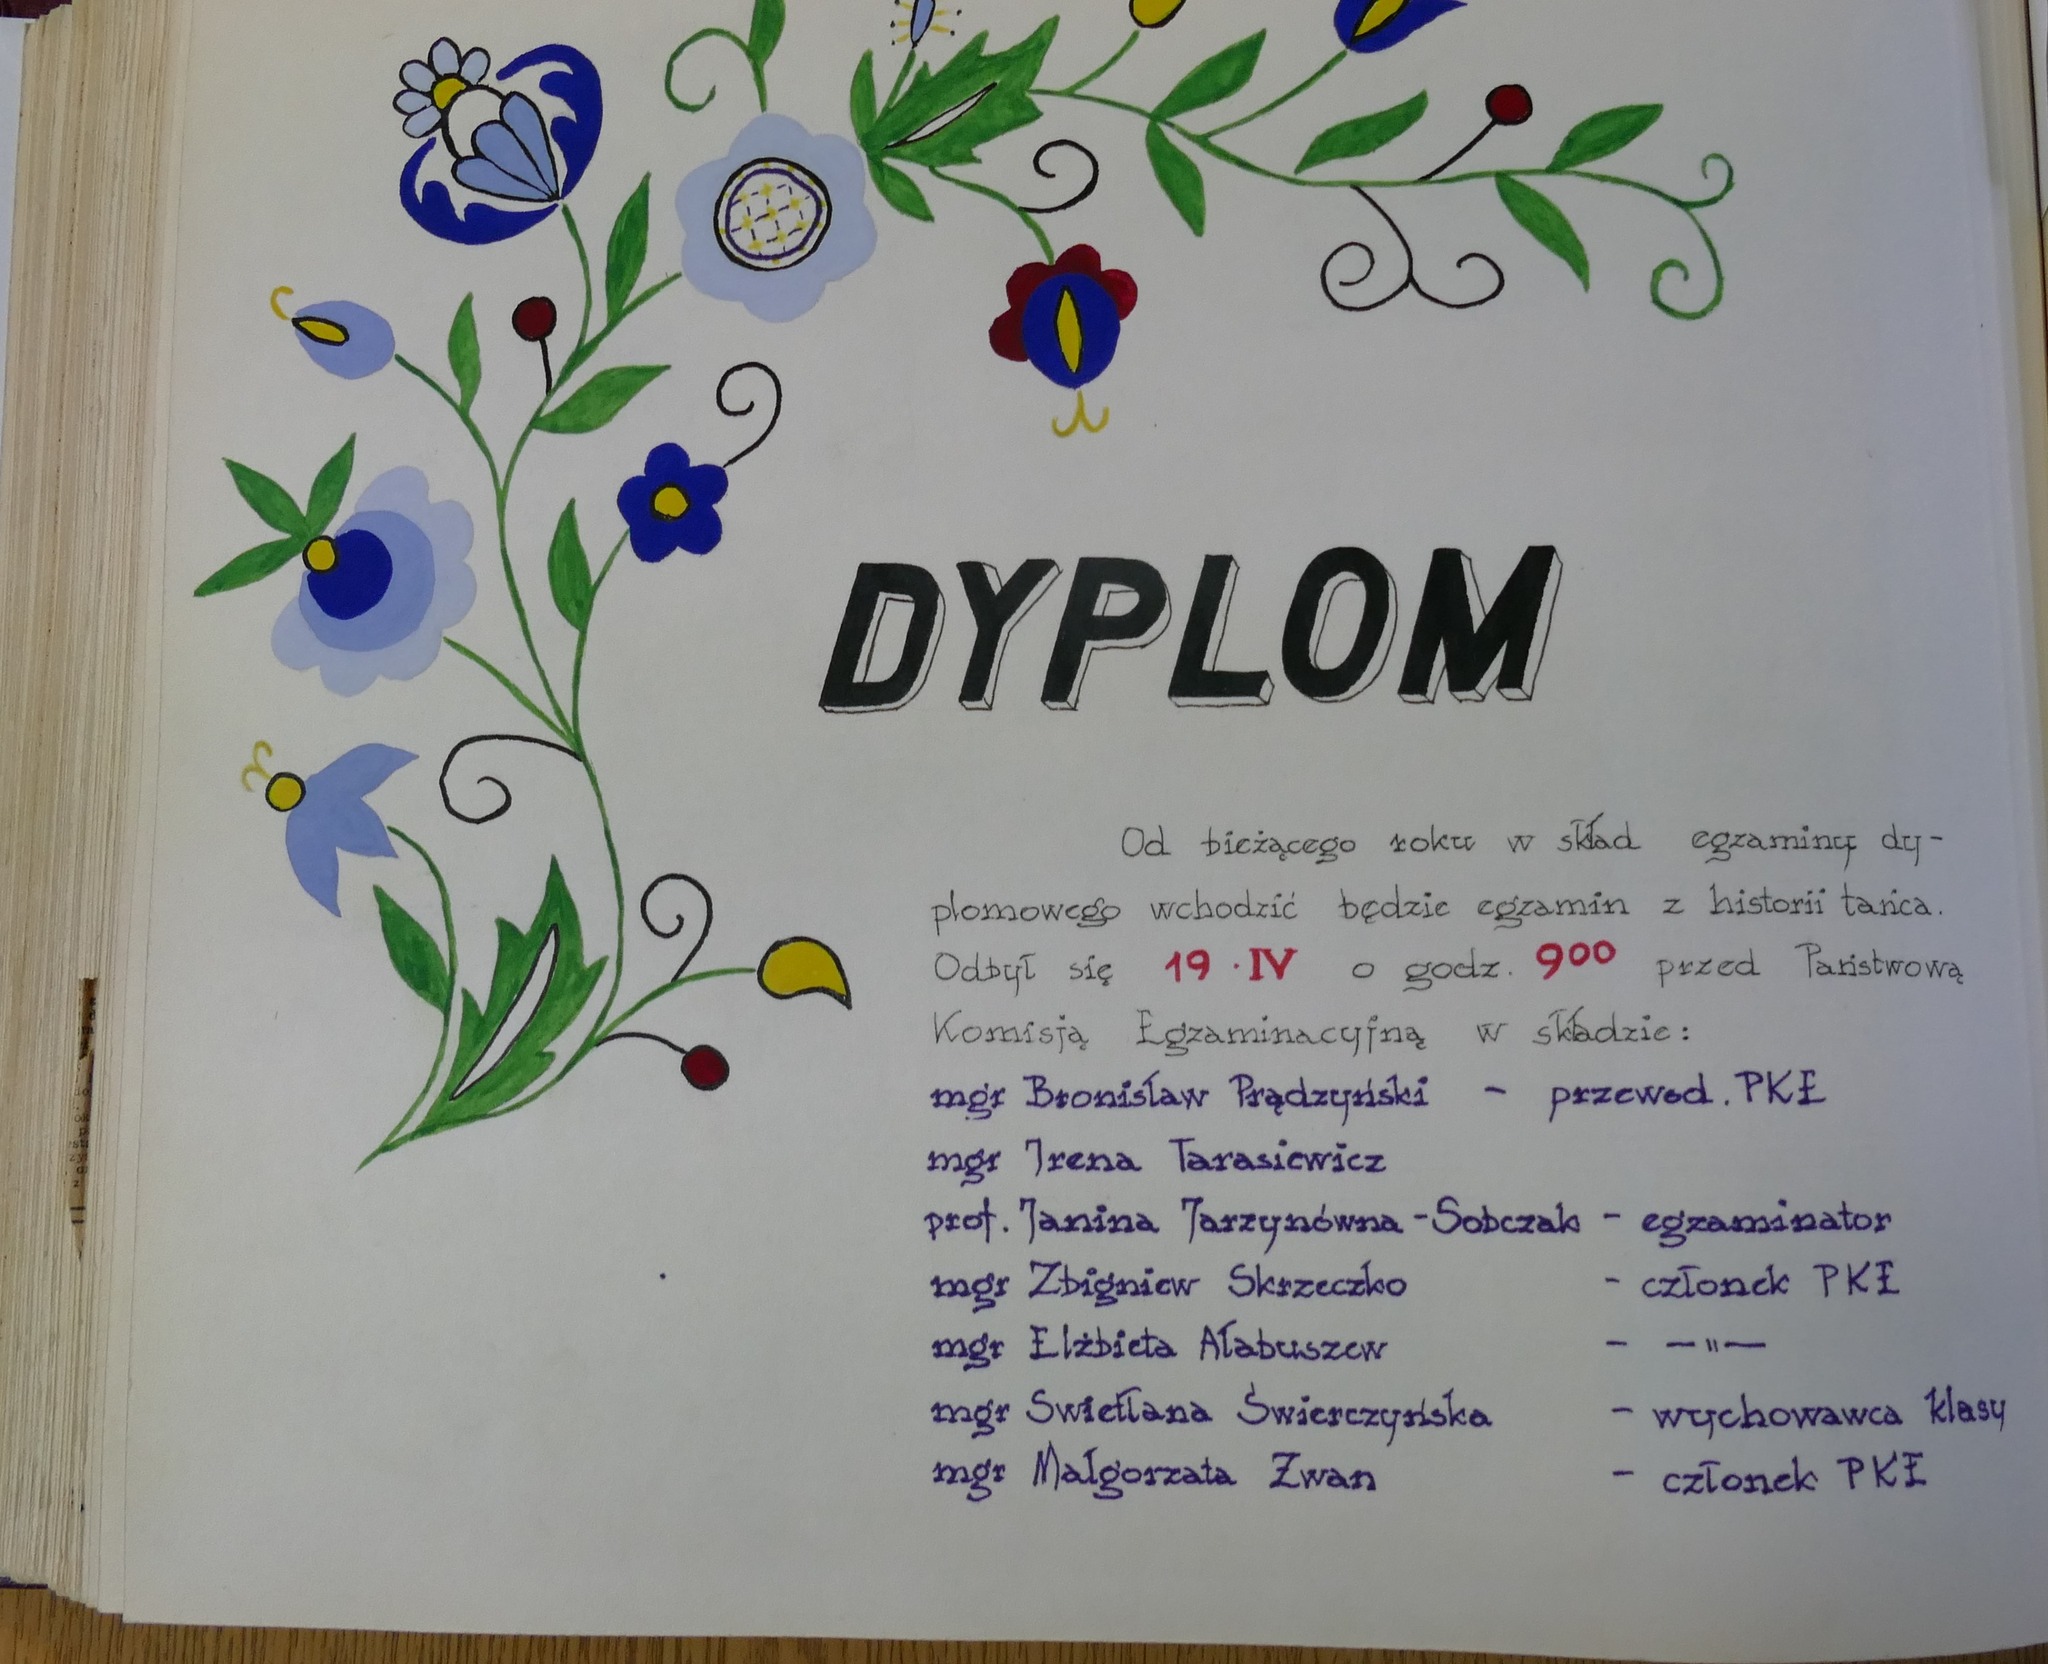 DYPLOM
Od bieżącego roku w skład egzaminy dy-
plomowego wchodzić będzie egzamin z historii tańca.
Odbył się 19 · IV o godz. 9⁰⁰ przed Państwową
Komisją Egzaminacyjną w składzie:
mgr Bronisław Prądzyński - przewod. PKE
mgr Irena Tarasiewicz
prof. Janina Jarzynówna-Sobczak - egzaminator
mgr Zbigniew Skrzeczko - członek PKE
mgr Elżbieta Ałabuszew - —"—
mgr Swietłana Świerczyńska - wychowawca klasy
mgr Małgorzata Zwan - członek PKE